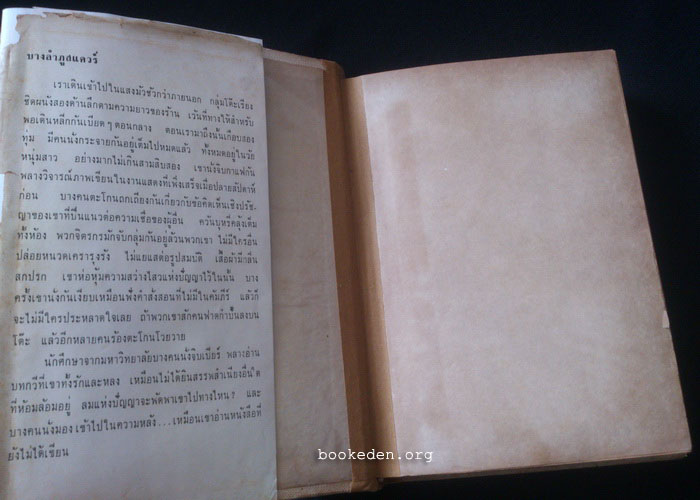 บางลำภูสแควร์
เราเดินเข้าไปในแสงมัวซัวกว่าภายนอก กลุ่มโต๊ะเรียง
ชิดผนังสองด้านลึกตามความยาวของร้าน เว้นที่ทางให้สำหรับ
พอเดินหลีกกันเบียด ๆ ตอนกลาง ตอนเรามาถึงนั้นเกือบสอง
ทุ่ม มีคนนั่งกระจายกันอยู่เต็มไปหมดแล้ว ทั้งหมดอยู่ในวัย
หนุ่มสาว อย่างมากไม่เกินสามสิบสอง เขานั่งจิบกาแฟกัน
พลางวิจารณ์ภาพเขียนในงานแสดงที่เพิ่งเสร็จเมื่อปลายสัปดาห์
ก่อน บางคนตะโกนถกเถียงกันเกี่ยวกับข้อคิดเห็นเชิงปรัช-
ญาของเขาที่ปีนแนวต่อความเชื่อของผู้อื่น ควันบุหรี่คลุ้งเต็ม
ทั้งห้อง พวกจิตรกรมักจับกลุ่มกันอยู่ล้วนพวกเขา ไม่มีใครอื่น
ปล่อยหนวดเครารุงรัง ไม่แยแสต่อรูปสมบัติ เสื้อผ้ามีกลิ่น
สกปรก เขาห่อหุ้มความสว่างไสวแห่งปัญญาไว้ในนั้น บาง
ครั้งเขานั่งกันเงียบเหมือนฟังคำสั่งสอนที่ไม่มีในคัมภีร์ แล้วก็
จะไม่มีใครประหลาดใจเลย ถ้าพวกเขาสักคนฟาดกำปั้นลงบน
โต๊ะ แล้วอีกหลายคนร้องตะโกนโวยวาย
นักศึกษาจากมหาวิทยาลัยบางคนนั่งจิบเบียร์ พลางอ่าน
บทกวีที่เขาทั้งรักและหลง เหมือนไม่ได้ยินสรรพสำเนียงอื่นใด
ที่ห้อมล้อมอยู่ ลมแห่งปัญญาจะพัดพาเขาไปทางไหน? และ
บางคนนั่งมองเข้าไปในความหลัง...เหมือนเขาอ่านหนังสือที่
ยังไม่ได้เขียน
bookeden.org